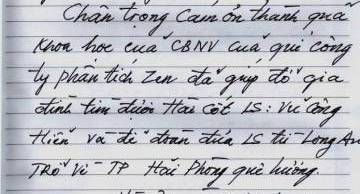 Chân trọng Cảm ơn thành quả
Khoa học của CBNV của quí công
ty phân tích Zen đã giúp đỡ gia
đình tìm được Hài cốt LS: Vũ Công
Hiến và di đoan đưa LS từ Long An
TRở Về TP Hải Phòng quê hương.